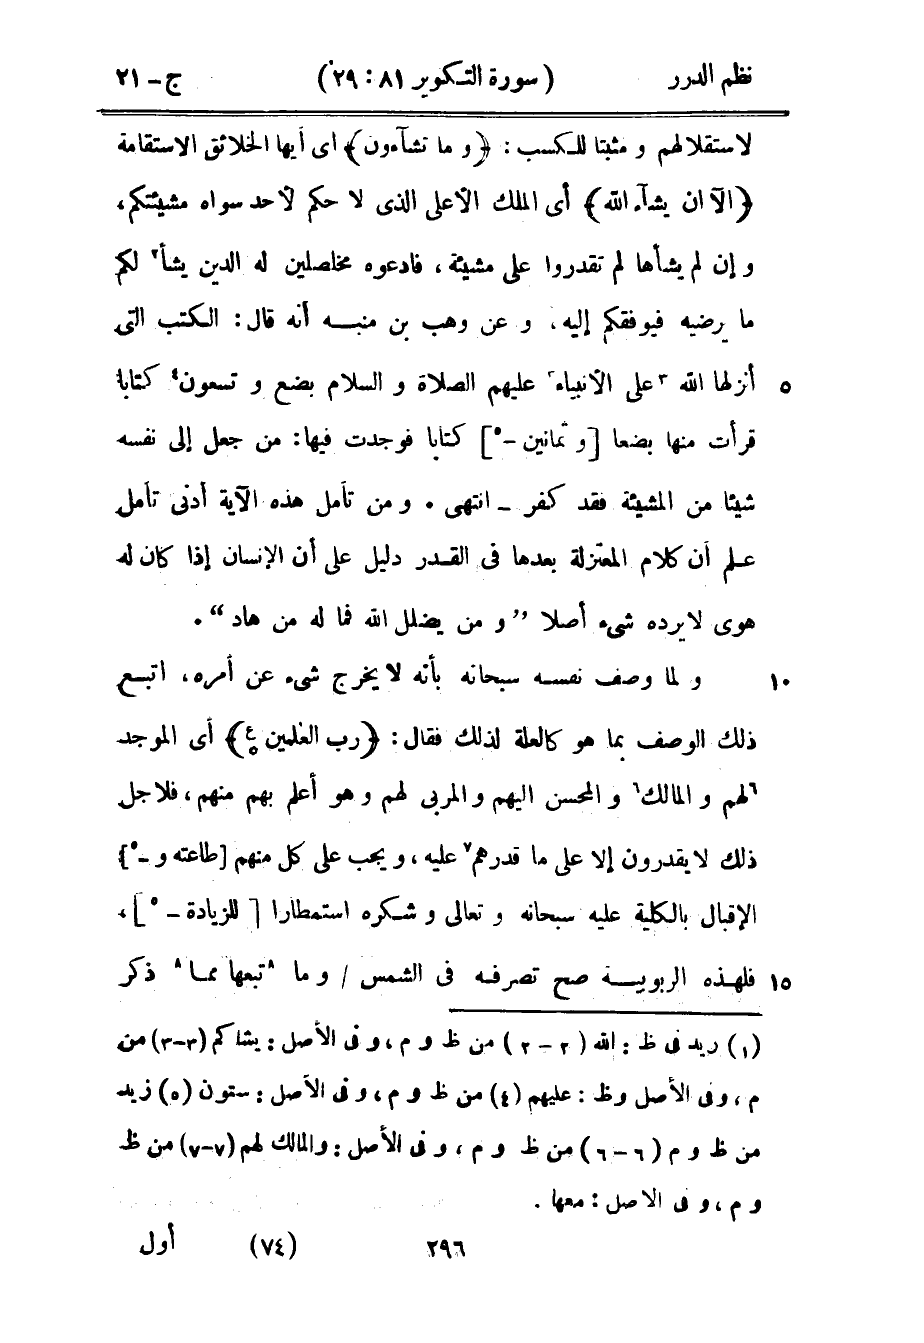 نظم الدرر (سورة التكوير ٨١ : ٢٩) ج – ٢١
لاستقلالهم و مثبتا للكسب : ﴿و ما تشآءون﴾ اى أيها الخلائق الاستقامة
﴿الآ ان يشآء الله﴾ أى الملك الأعلى الذى لا حكم لأحد سواه مشيئتكم،
و إن لم يشأها لم تقدروا على مشيئة ، فادعوه مخلصلين له الدين يشأ٢ لكم
ما يرضيه فيوفقكم إليه. و عن وهب بن منبـه أنه قال : الكتب التى
٥ أنزلها الله ٣على الأنبياء٣ عليهم الصلاة و السلام بضع و تسعون٤ كتابا
قرأت منها بضعا [و ثمانين –٥] كتابا فوجدت فيها: من جعل إلى نفسه
شيئا من المشيئة فقد كفر – انتهى . و من تأمل هذه الآية أدنى تأمل
علم أن كلام المعتزلة بعدها فى القدر دليل على أن الإنسان إذا كان له
هوى لا يرده شىء أصلا ” و من يضلل الله فما له من هاد “ .
١٠ و لما وصف نفسه سبحانه بأنه لا يخرج شىء عن أمره، اتبع
ذلك الوصف بما هو كالعلة لذلك فقال : ﴿رب العٰلمين ع﴾ أى الموجد
٦لهم و المالك٦ و المحسن اليهم و المربى لهم و هو أعلم بهم منهم، فلاجل
ذلك لا يقدرون إلا على ما قدرهم٧ عليه، و يجب على كل منهم [طاعته و –٥]
الإقبال بالكلية عليه سبحانه و تعالى و شكره استمطارا [ للزيادة – ٥] ،
١٥ فلهذه الربوبية صح تصرفه فى الشمس / و ما ٨تبعها مما٨ ذكر
(١) زيد فى ظ : الله (٢ – ٢) من ظ و م ، و فى الأصل : يشاكم (٣–٣) من
م ، و فى الأصل وظ : عليهم (٤) من ظ و م ، و فى الأصل : ستون (٥) زيد
من ظ و م (٦ – ٦) من ظ و م ، و فى الأصل : والمالك لهم (٧–٧) من ظ
و م ، و فى الاصل : معها .
٢٩٦ (٧٤) أول